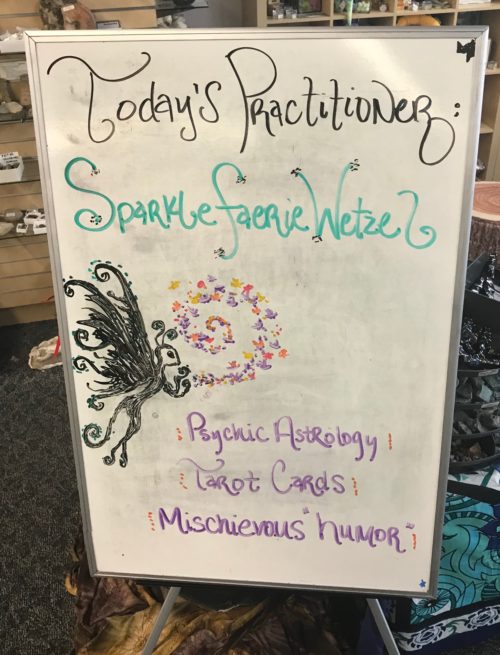 Today's Practitioner:
Sparkle Faerie Wetzel
Psychic Astrology
Tarot Cards
Mischievous "humor"